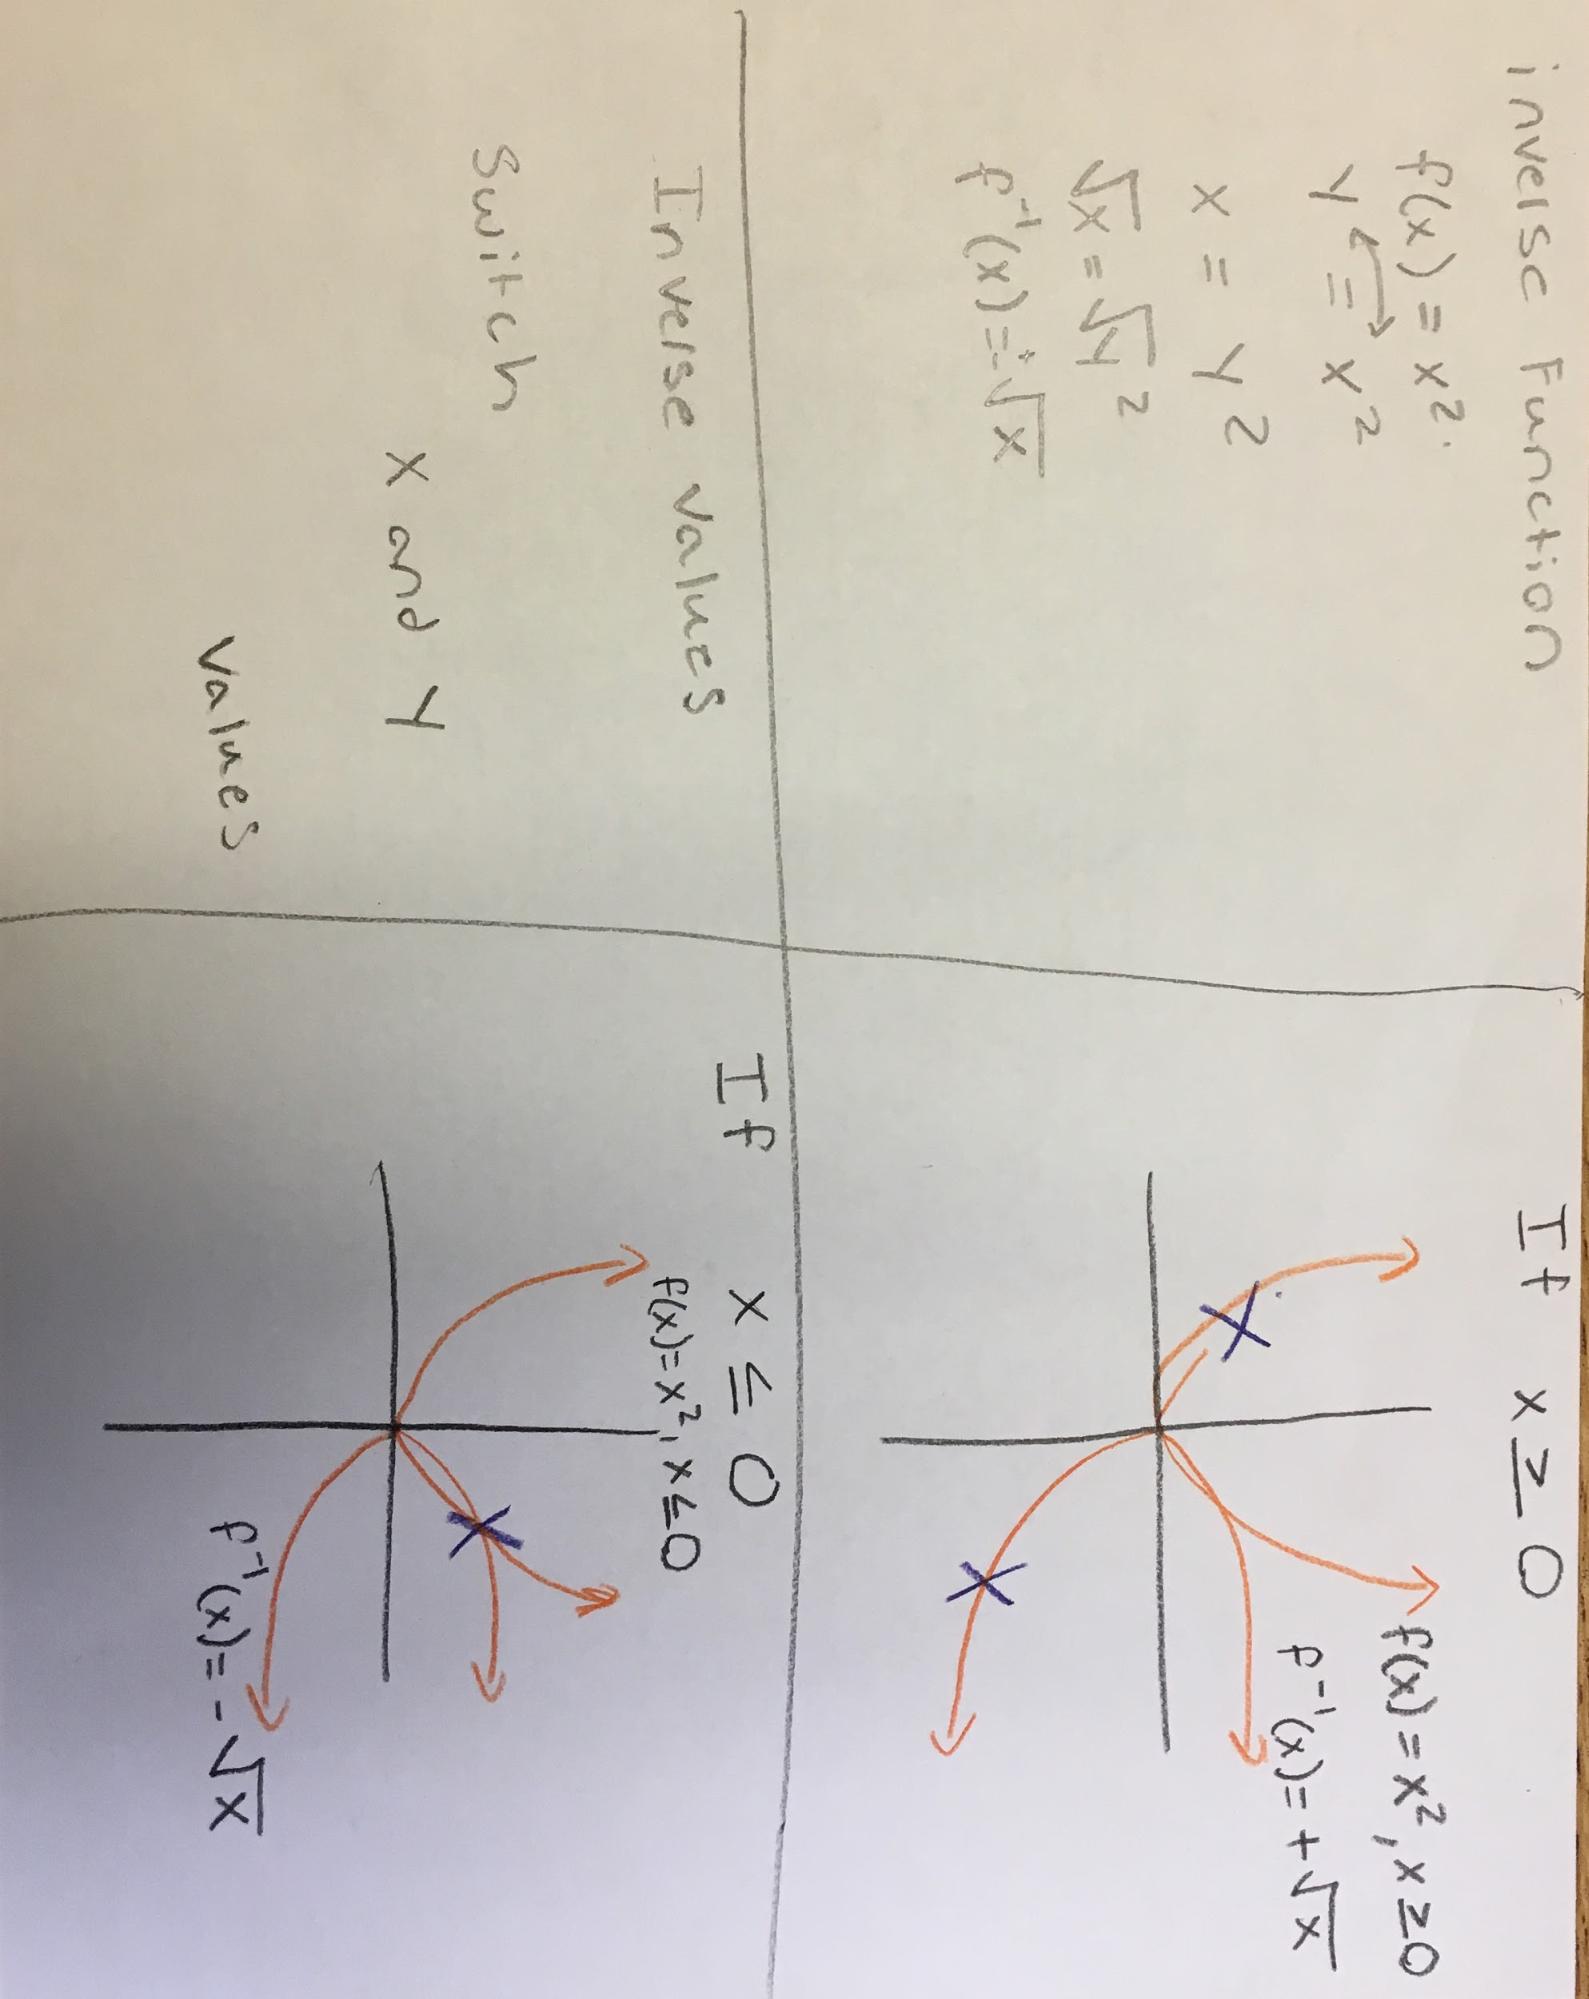 inverse Function
f(x) = x².
y = x²
x = y²
√x = √y²
f⁻¹(x) = ±√x
If x ≥ 0
f(x) = x², x ≥ 0
f⁻¹(x) = +√x
Inverse values
Switch
x and y
values
If x ≤ 0
f(x) = x², x ≤ 0
f⁻¹(x) = -√x